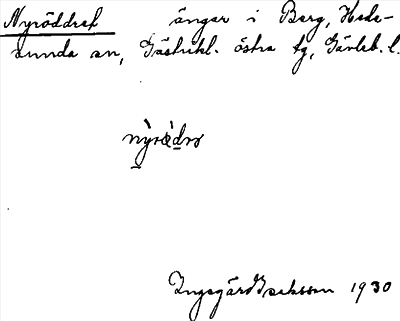 Nyröddret ängar i Berg, Hede-
sunda sn, Gästrikl. östra tg, Gävleb. l.
nỳrø̀drə
Ingegärd Isaksson 1930